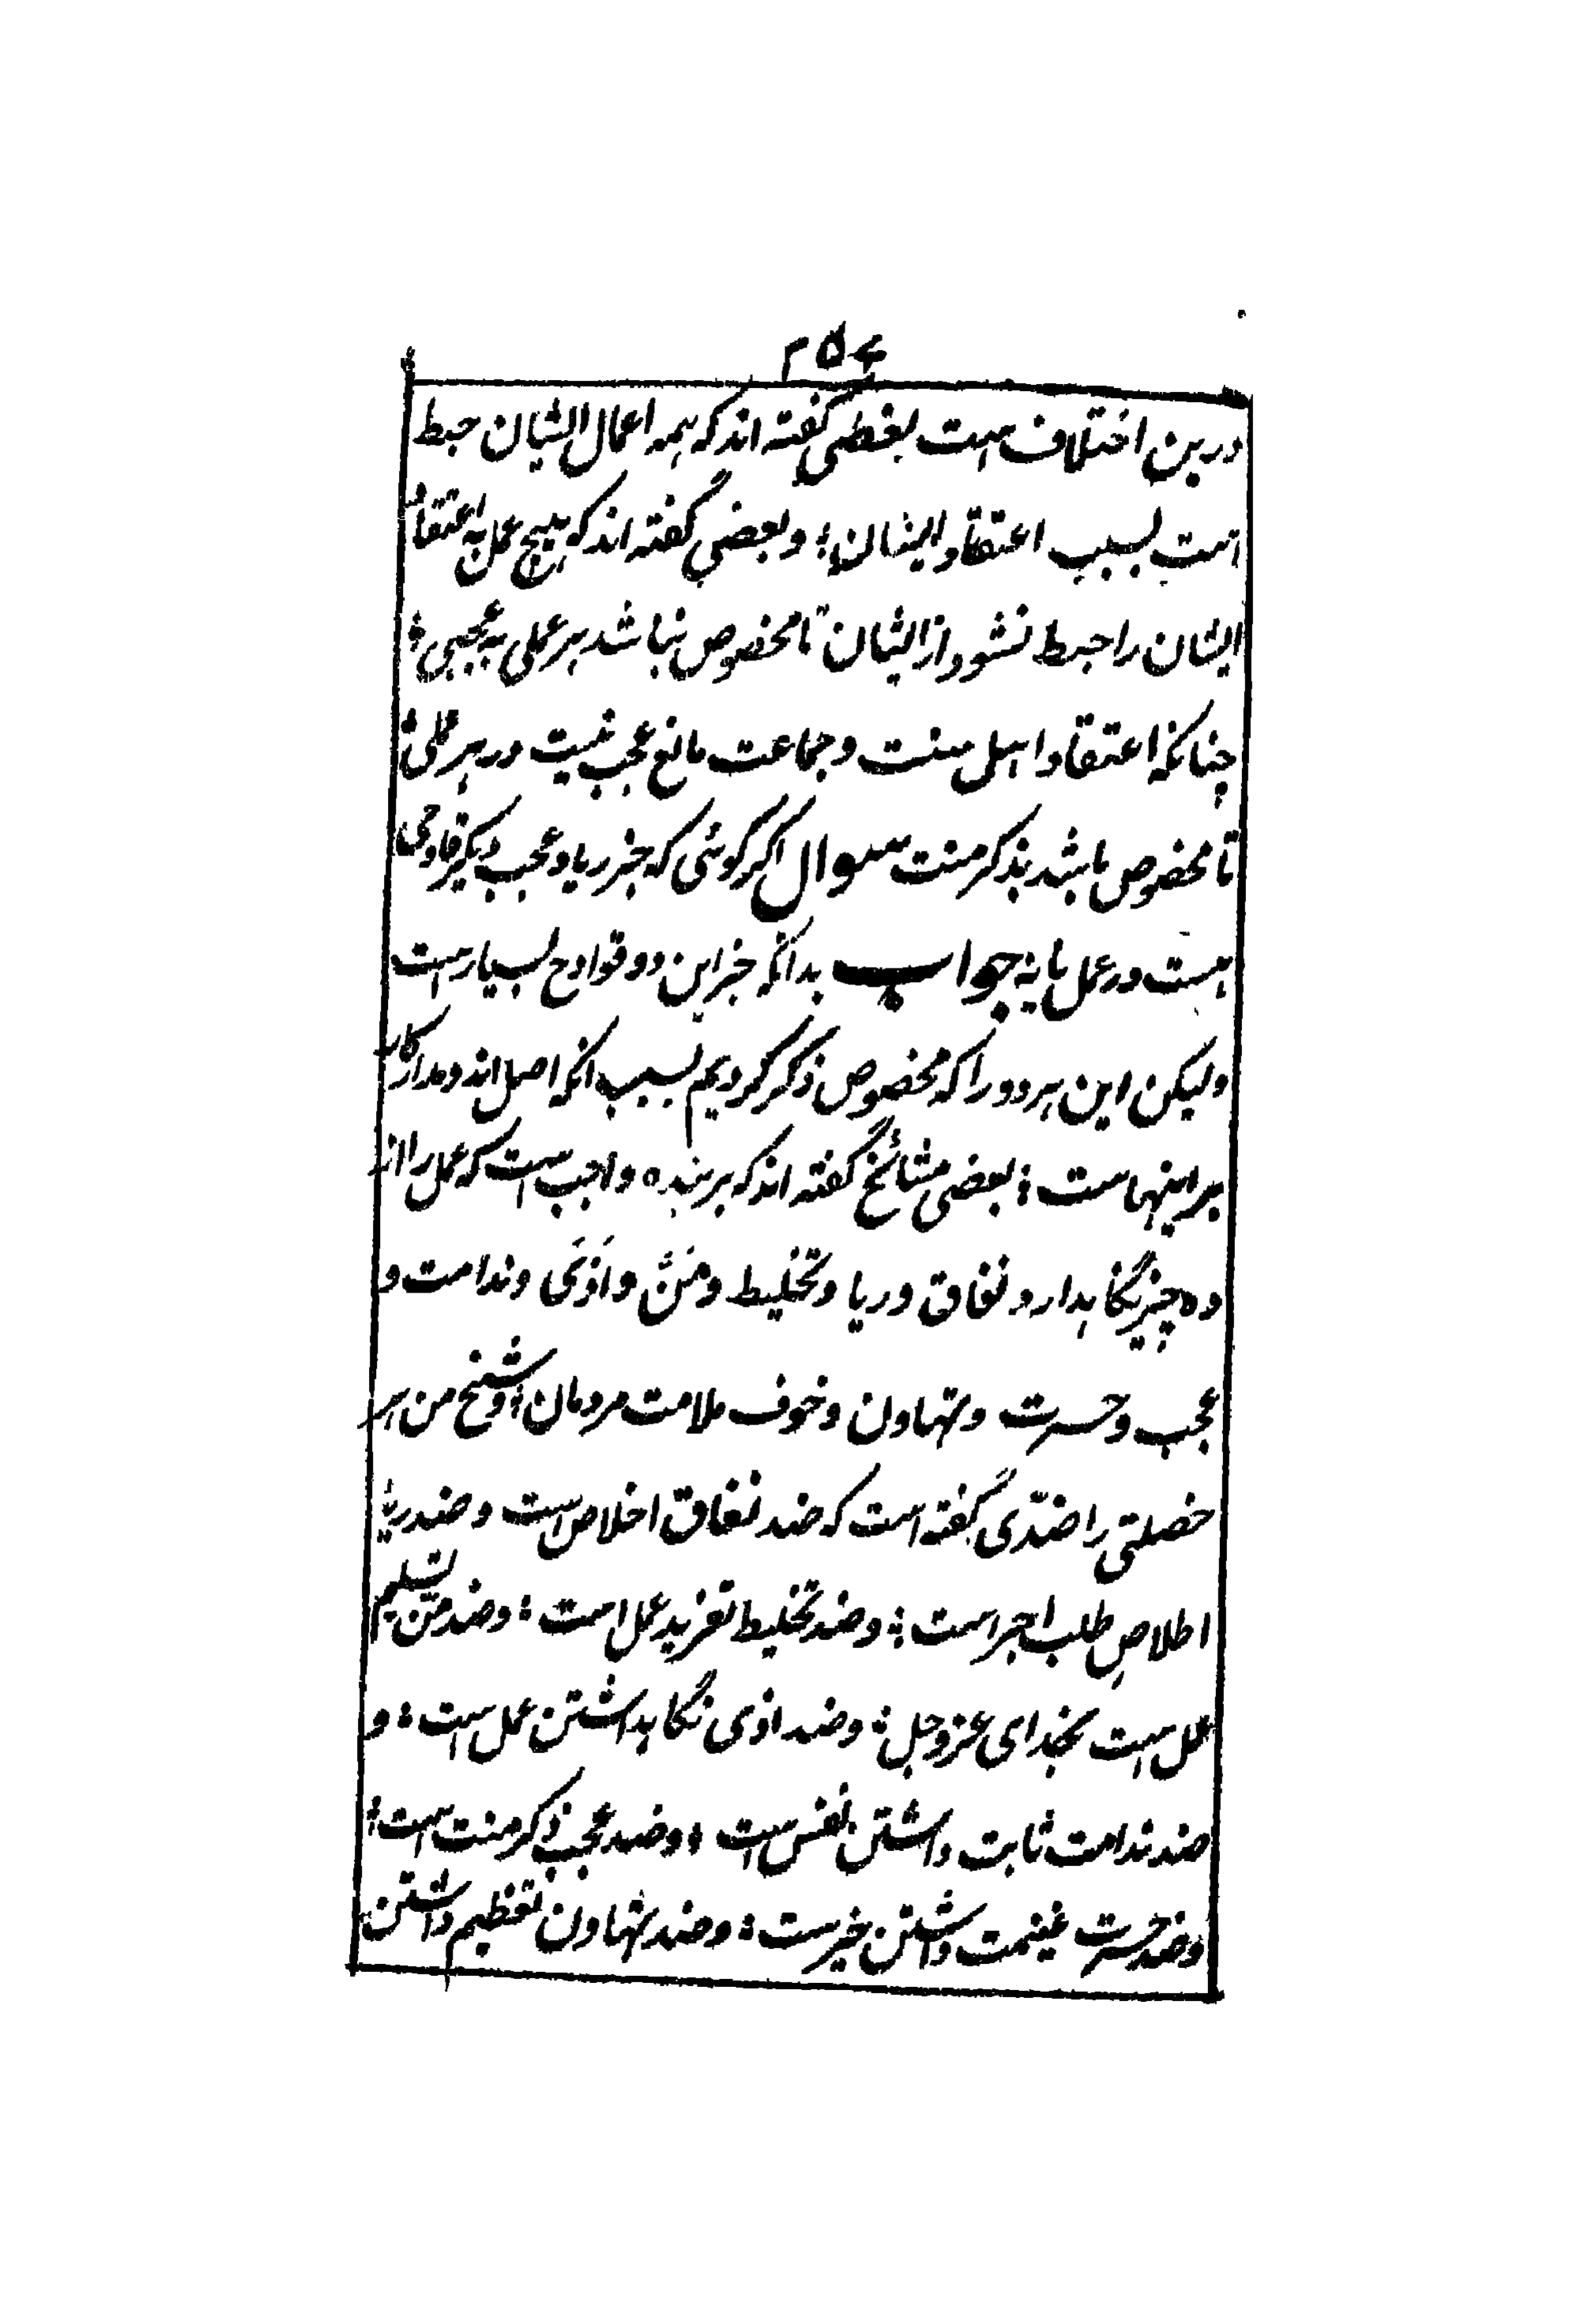 ۲۵۶
درین اختلاف است بعضی گفته اند که همه اعمال ایشان حبط
است بسبب اعتقاد ایشان؛ و بعضی گفته اند که هیچ عمل به اعتقاد
ایشان را حبط نشود از ایشان تا مخصوص نباشد هر عملی به عجبی؛
چنانکه اعتقاد اهل سنت و جماعت مانع عجب نیست در هر عملی؛
تا مخصوص باشد بذکر منت سوال اگر گوئی که جز ریا و عجب دیگر قادحی
هست در عمل یا نه جواب بدانکه جز این دو قوادح بسیار است
ولیکن این هر دو را که مخصوص ذکر کردیم بسبب آنکه اصل اند و مدار کار
بر اینهاست؛ بعضی مشائخ گفته اند که بر بنده واجب است که عمل را از
ده چیز نگاهدارد نفاق و ریا و تخلیط و مَنّ و اَذَی و ندامت و
عجب و حسرت و تهاون و خوف ملامت مردمان؛ و شیخ من هر
خصلتی را ضدّی گفته است که ضد نفاق اخلاص است و ضد ریا
اخلاصِ طلب اجر است؛ و ضد تخلیط تفرید عمل است؛ و ضد منّ تسلیم
عمل است بخدای عزوجل؛ و ضد اذی نگاهداشتن عمل است؛ و
ضد ندامت ثابت داشتن نفس است؛ و ضد عجب ذکر منت است؛
و ضد حسرت غنیمت داشتن خیرست؛ و ضد تهاون تعظیم داشتن